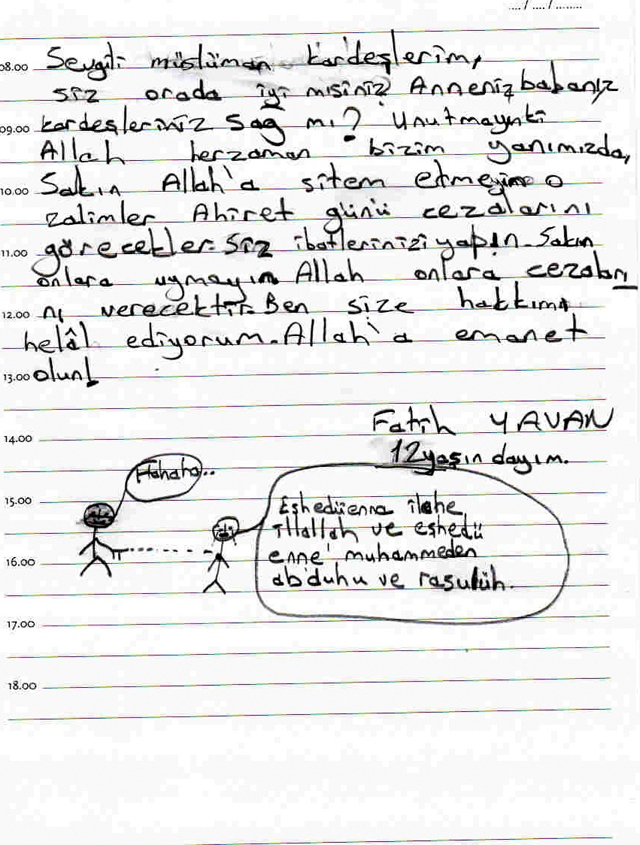 .... / .... / ........
08.00 Sevgili müslüman kardeşlerim,
siz orada iyi misiniz? Anneniz babanız
09.00 kardeşleriniz sağ mı? Unutmayınki
Allah herzaman bizim yanımızda,
10.00 Sakın Allah'a sitem etmeyin o
zalimler Ahiret günü cezalarını
11.00 görecekler. Siz ibatlerinizi yapın. Sakın
onlara uymayın Allah onlara cezaları
12.00 nı verecektir. Ben size hakkımı
helâl ediyorum. Allah'a emanet
13.00 olun!
Fatih YAVAN
14.00
12 yaşın dayım.
Hahaha..
15.00
Eşhedüenna ilahe
illallah ve eşhedü
enne muhammeden
16.00
abduhu ve rasulüh.
17.00
18.00